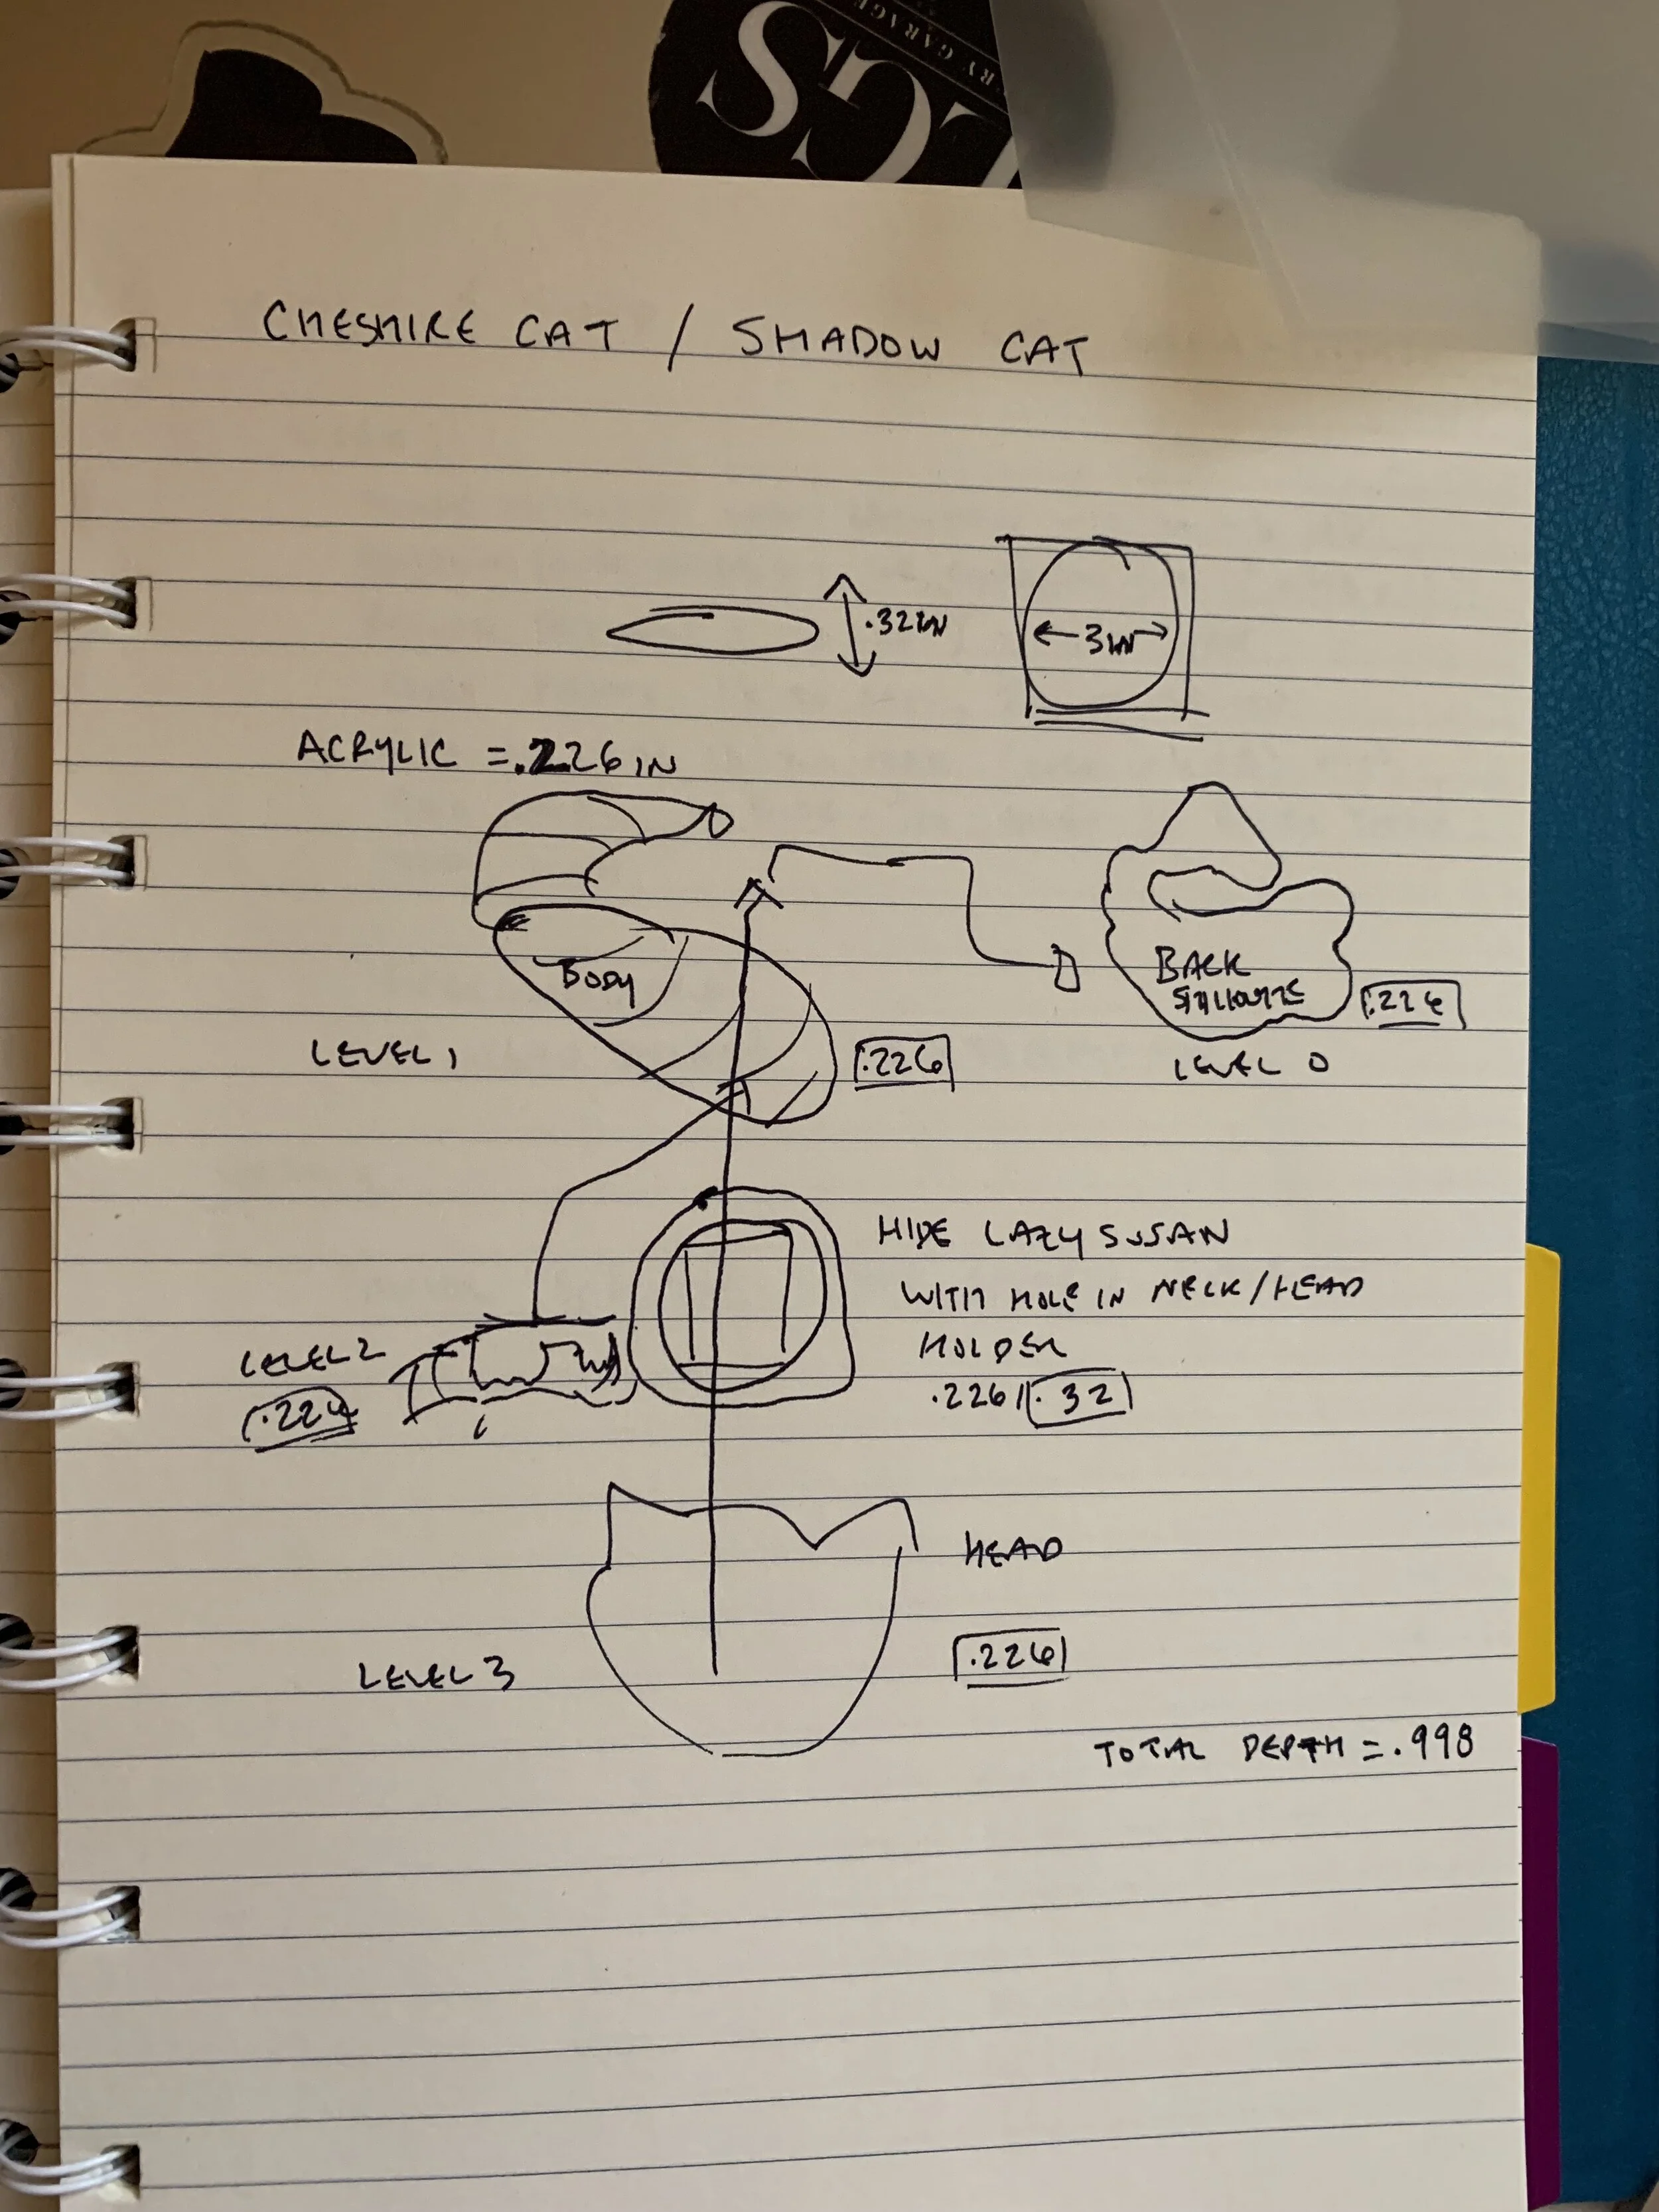 CS
RY GARAGE
CHESHIRE CAT / SHADOW CAT
.322IN
3IN
ACRYLIC = .226 IN
BODY
BACK
LEVEL 1
.226
.226
LEVEL 0
HIDE LAZY SUSAN
WITH HOLE IN NECK/HEAD
HOLDER
.226 / .32
LEVEL 2
.226
HEAD
LEVEL 3
.226
TOTAL DEPTH = .998